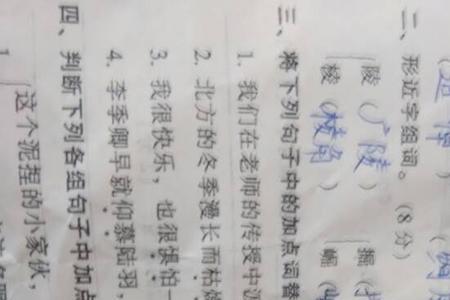 二、形近字组词。(8分)
陵(广陵) 掘(
棱(棱角) 崛(
三、将下列句子中的加点词替
1. 我们在老师的传授中
2. 北方的冬季漫长而枯燥
3. 我很快乐，也很惧怕一
4. 李季卿早就仰慕陆羽，
四、判断下列各组句子中加点
1.
这个泥捏的小家伙，